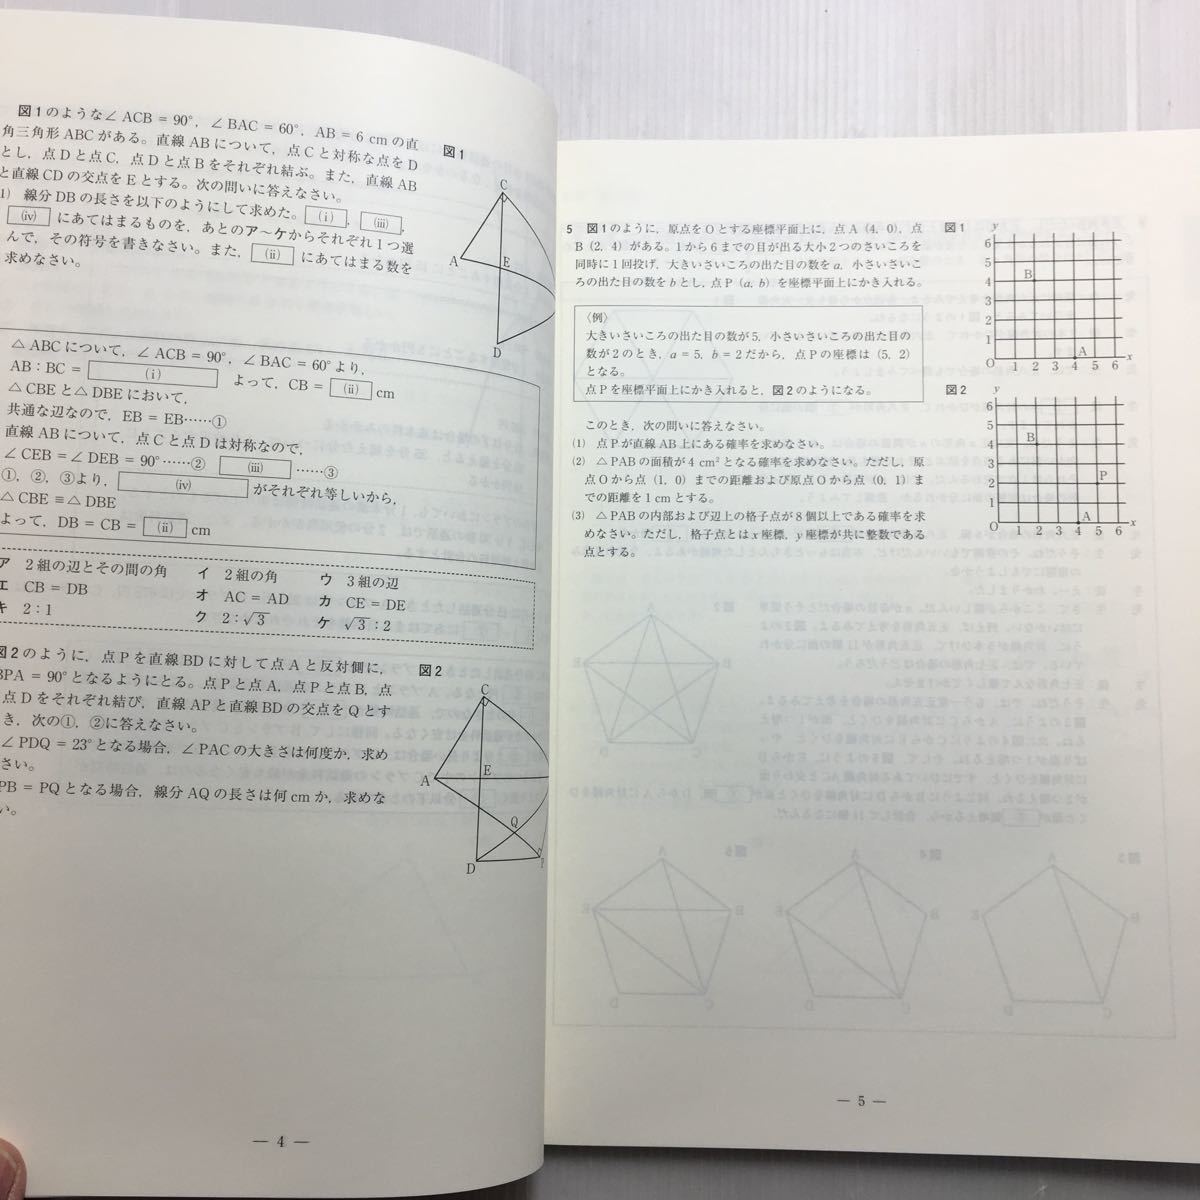 図1のような∠ACB = 90°, ∠BAC = 60°, AB = 6 cmの直
角三角形ABCがある。直線ABについて, 点Cと対称な点をD
とし, 点Dと点C, 点Dと点Bをそれぞれ結ぶ。また, 直線AB
と直線CDの交点をEとする。次の問いに答えなさい。
1) 線分DBの長さを以下のようにして求めた。(i), (iii),
(iv)にあてはまるものを, あとのア〜ケからそれぞれ1つ選
んで, その符号を書きなさい。また, (ii)にあてはまる数を
求めなさい。
図1
C
A
E
D
△ABCについて, ∠ACB = 90°, ∠BAC = 60°より,
AB : BC = (i) よって, CB = (ii) cm
△CBEと△DBEにおいて,
共通な辺なので, EB = EB……①
直線ABについて, 点Cと点Dは対称なので,
∠CEB = ∠DEB = 90°……② (iii)……③
①, ②, ③より, (iv)がそれぞれ等しいから,
△CBE ≡ △DBE
よって, DB = CB = (ii) cm
ア 2組の辺とその間の角 イ 2組の角 ウ 3組の辺
エ CB = DB オ AC = AD カ CE = DE
キ 2 : 1 ク 2 : √3 ケ √3 : 2
図2のように, 点Pを直線BDに対して点Aと反対側に,
BPA = 90°となるようにとる。点Pと点A, 点Pと点B, 点
点Dをそれぞれ結び, 直線APと直線BDの交点をQとす
き, 次の①, ②に答えなさい。
∠PDQ = 23°となる場合, ∠PACの大きさは何度か, 求め
さい。
PB = PQとなる場合, 線分AQの長さは何cmか, 求めな
い。
図2
C
E
A
Q
D
P
— 4 —
5 図1のように, 原点をOとする座標平面上に, 点A(4, 0), 点
B(2, 4)がある。1から6までの目が出る大小2つのさいころを
同時に1回投げ, 大きいさいころの出た目の数をa, 小さいさいこ
ろの出た目の数をbとし, 点P(a, b)を座標平面上にかき入れる。
〈例〉
大きいさいころの出た目の数が5, 小さいさいころの出た目の
数が2のとき, a = 5, b = 2だから, 点Pの座標は(5, 2)
となる。
点Pを座標平面上にかき入れると, 図2のようになる。
このとき, 次の問いに答えなさい。
(1) 点Pが直線AB上にある確率を求めなさい。
(2) △PABの面積が4 cm²となる確率を求めなさい。ただし, 原
点Oから点(1, 0)までの距離および原点Oから点(0, 1)ま
での距離を1 cmとする。
(3) △PABの内部および辺上の格子点が8個以上である確率を求
めなさい。ただし, 格子点とはx座標, y座標が共に整数である
点とする。
図1
y
6
5
B
4
3
2
1
A
O 1 2 3 4 5 6 x
図2
y
6
5
B
4
3
P
2
1
A
O 1 2 3 4 5 6 x
— 5 —